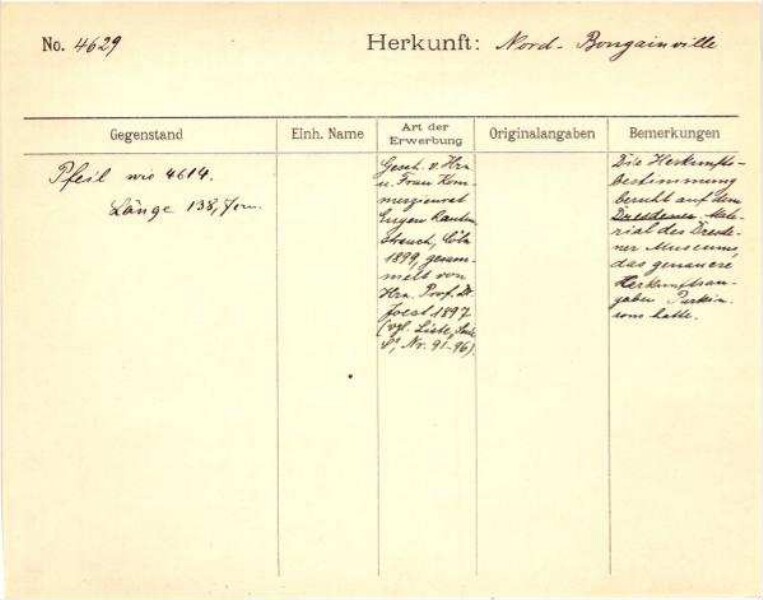 No. 4629
Herkunft: Nord-Bougainville
Gegenstand
Einh. Name
Art der
Erwerbung
Originalangaben
Bemerkungen
Pfeil wie 4614.
Länge 138,7 cm.
Gesch. v. Hrn
u. Frau Kom-
merzienrat
Eugen Rauten
strauch, Cöln
1899, gesam-
melt von
Hrn. Prof. Dr.
Joest 1897
(vgl. Liste,
Nr. 91-96)
Die Herkunfts-
bestimmung
beruht auf dem
Dresdener Mate-
rial des Dresde-
ner Museums,
das genauere
Herkunftsan-
gaben Parkin-
sons hatte.